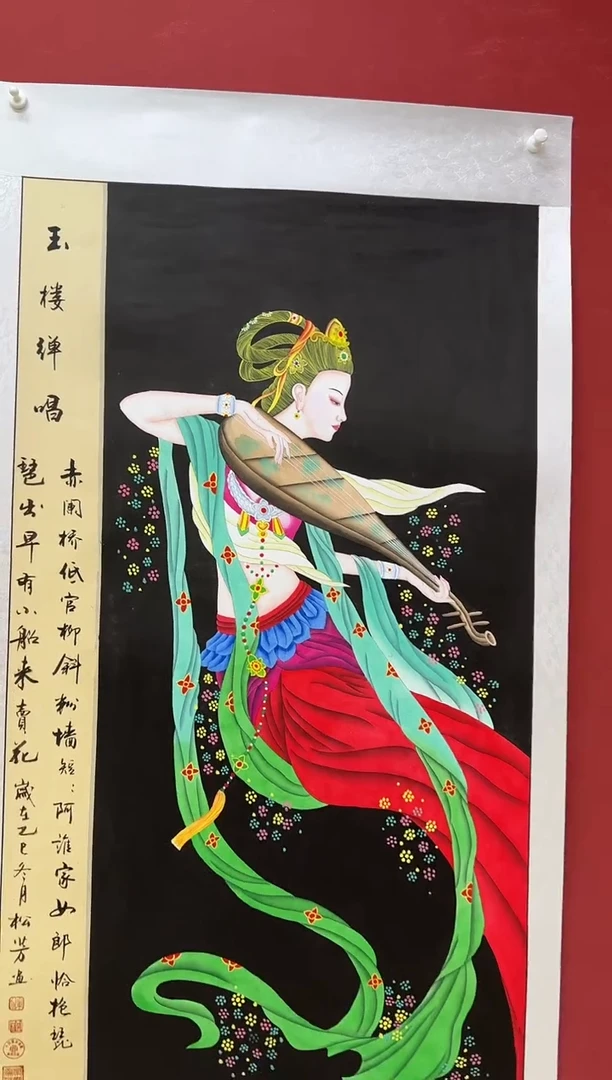 玉楼弹唱
赤阑桥低官柳斜粉墙短:阿谁家女郎恰抱琵
琶出早有小船来賣花 歲在乙巳冬月松芳画